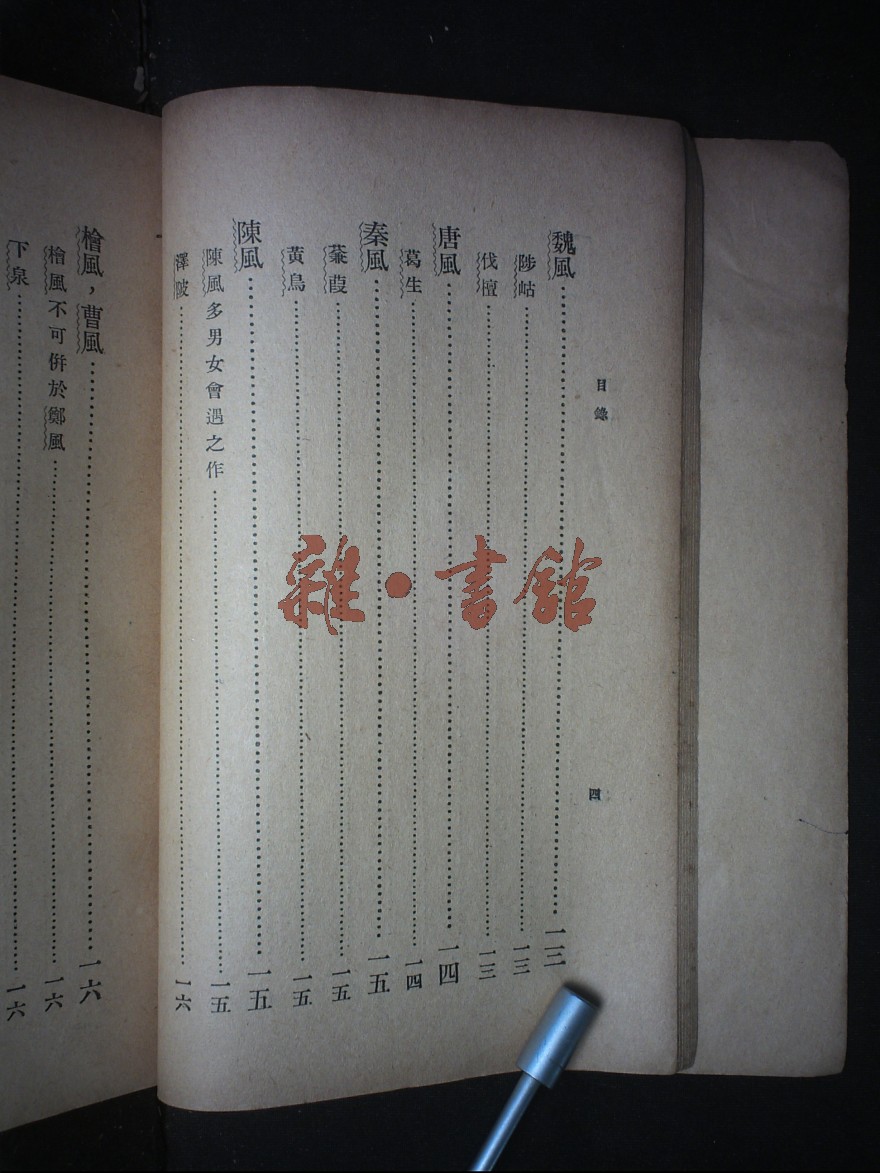 目錄
四
魏風……一三
陟岵……一三
伐檀……一三
唐風……一四
葛生……一四
秦風……一五
蒹葭……一五
黃鳥……一五
陳風……一五
陳風多男女會遇之作……一五
澤陂……一六
檜風，曹風……一六
檜風不可併於鄭風……一六
下泉……一六
雜·書館